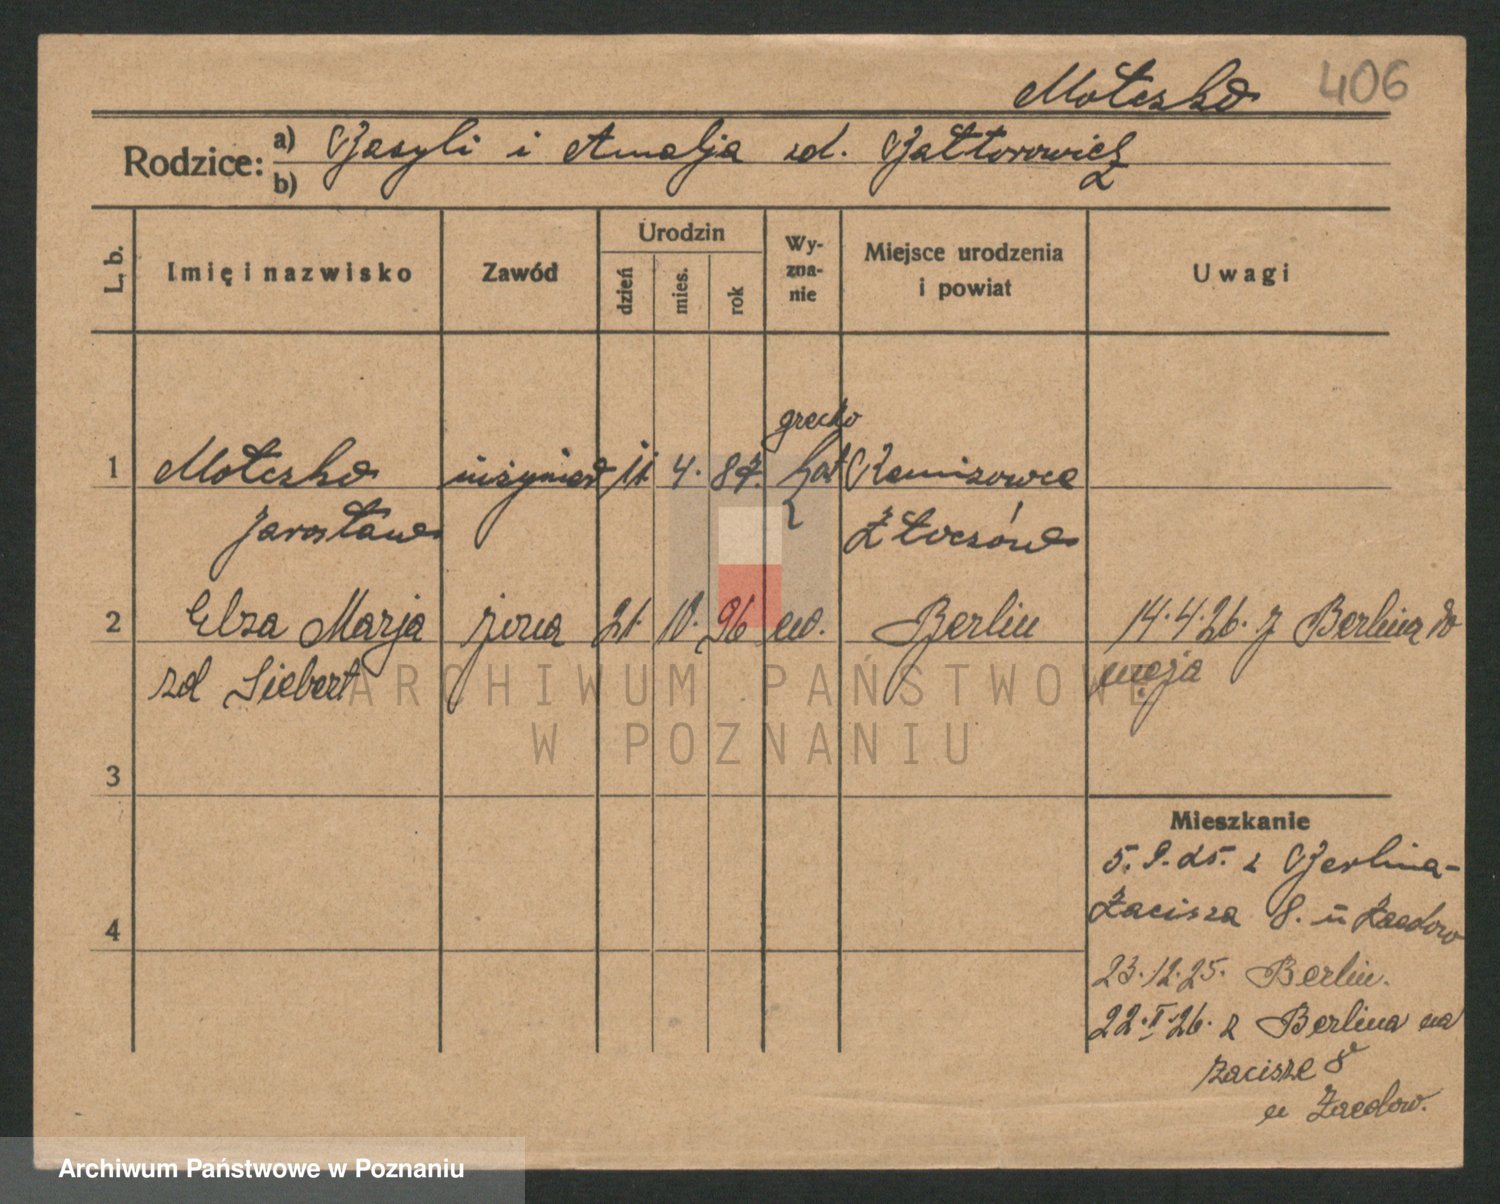 Moteszko 406
Rodzice: a) Bazyli i Amalja zd. Battorowicz
b)
L. b. Imię i nazwisko Zawód Urodzin dzień mies. rok Wyznanie Miejsce urodzenia i powiat Uwagi
grecko
1 inżynier 11 4. 87. kat Remizowce
Jarosław Złoczów
2 Elza Marja żona 21. 10. 96 ew. Berlin 14.4.26. z Berlina do
zd Siebert męża
3
Mieszkanie
5. 9. 25. z Berlina-
4 Zacisza 8.
23.12.25. Berlin.
22. 26. z Berlina na
Zacisze 8
u
ARCHIWUM PAŃSTWOWE
W POZNANIU
Archiwum Państwowe w Poznaniu